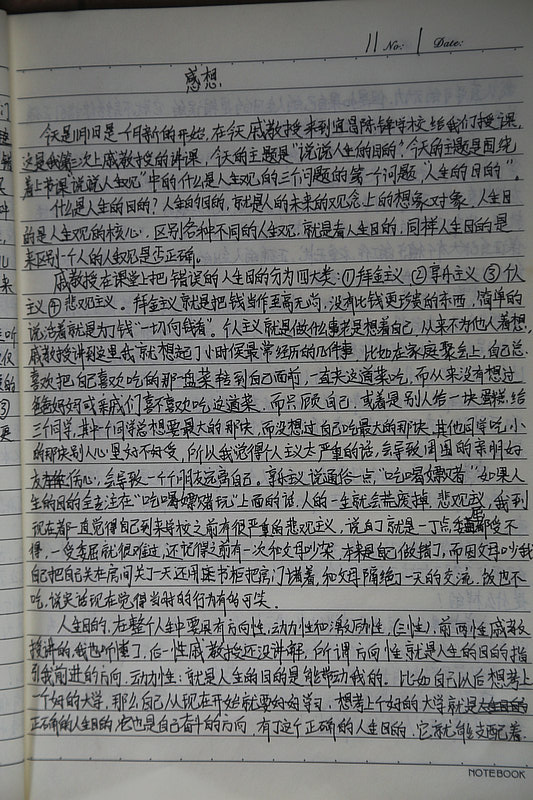 11 No: 1 Date:
感想
今天是11月1日是一个月新的开始,在今天戚教授来到宜昌陈锋学校给我们授课,
这是我第三次上戚教授的讲课,今天的主题是“说说人生的目的”,今天的主题是围绕
着上节课“说说人生观”中的什么是人生观的三个问题的第一个问题“人生的目的”。
什么是人生的目的?人生的目的,就是人的未来的观念上的想象对象,人生目
的是人生观的核心,区别各种不同的人生观,就是看人生目的,同样人生目的是
来区别个人的人生观是否正确。
戚教授在课堂上把错误的人生目的分为四大类:①拜金主义 ②享乐主义 ③个人
主义 ④悲观主义。拜金主义就是把钱当作至高无尚,没有比钱更珍贵的东西,简单的
说活着就是为了钱“一切向钱看”。个人主义就是做什么事老是想着自己,从来不为他人着想,
戚教授讲到这里我就想起了小时侯最常经历的几件事,比如在家庭聚会上,自己总
喜欢把自己喜欢吃的那一盘菜转到自己面前,一直夹这道菜吃,而从来没有想过
爸爸妈妈或亲戚们喜不喜欢吃这道菜,而只顾自己,或着是别人给一块蛋糕,给
三个同学,其中一个同学总想要最大的那块,而没想过自己吃最大的那块,其他同学吃小
的那块别人心里好不好受,所以我觉得个人主义太严重的话,会导致周围的亲朋好
友伤心,会导致一个个朋友远离自己。享乐主义说通俗一点,“吃喝嫖赌”如果人
生的目的全专注在“吃喝嫖赌玩”上面的话,人的一生就会荒废掉。悲观主义,我到
现在都一直觉得自己到来学校之前有很严重的悲观主义,说白了就是一丁点委屈都受不
得,一受委屈就很难过,还记得之前有一次和父母吵架,本来是自己做错了,而因父母吵我
自己把自己关在房间关了一天还用床书柜把房门堵着,和父母隔绝了一天的交流,饭也不
吃,说笑话现在觉得当时的行为有的可笑。
人生目的,在整个人生中要具有方向性,动力性和激励性,(三性),前两性戚教
授讲的,我也听懂了,后一性戚教授还没讲解,所谓方向性就是人生的目的指
引我前进的方向,动力性:就是人生的目的是能带动我的。比如自己以后想考上
一个好的大学,那么自己从现在开始就要好好学习,想考上个好的大学就是
正确的人生目的,它也是自己奋斗的方向,有了这个正确的人生目的,它就能支配着
NOTEBOOK